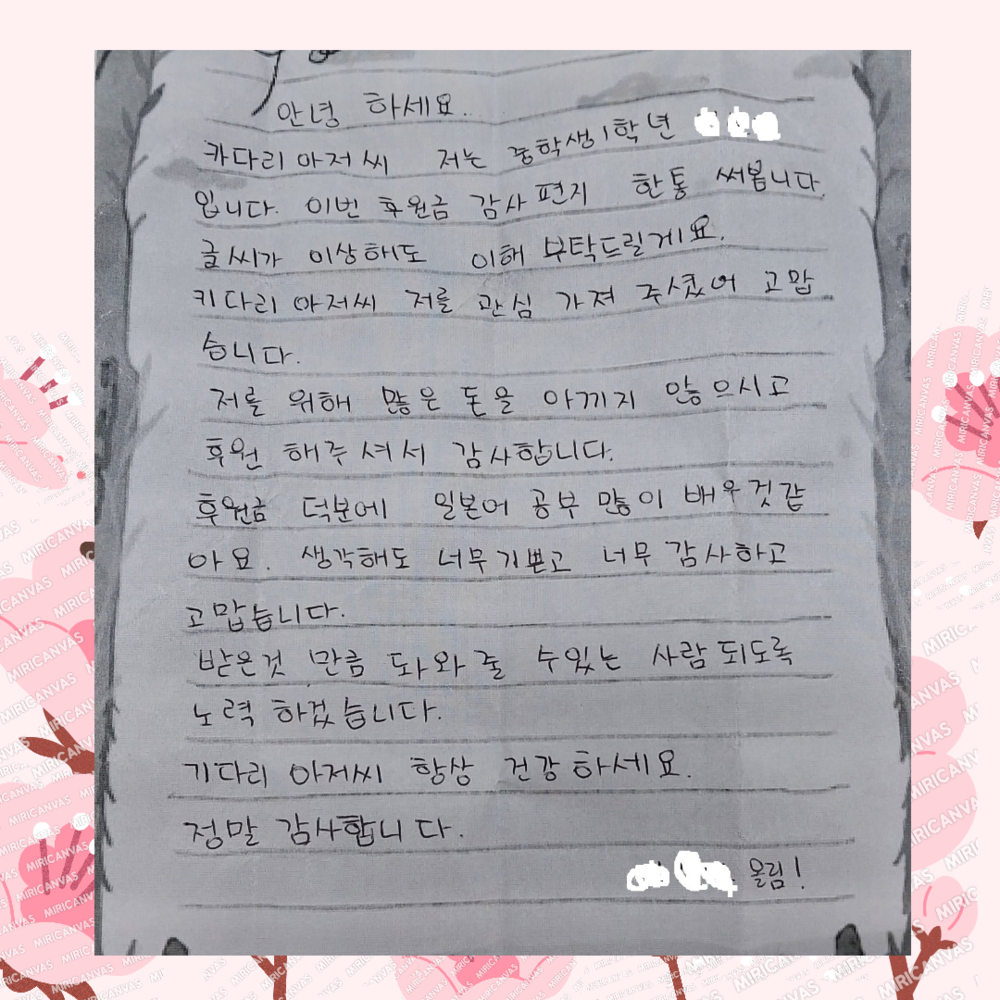 안녕 하세요.
카다리 아저씨 저는 중학생1학년
입니다. 이번 후원금 감사 편지 한통 써봅니다.
글씨가 이상해도 이해 부탁드릴게요.
키다리 아저씨 저를 관심 가져 주셨어 고맙
습니다.
저를 위해 많은 돈을 아끼지 않으시고
후원 해주셔서 감사합니다.
후원금 덕분에 일본어 공부 많이 배우것같
아요. 생각해도 너무기쁜고 너무 감사하고
고맙습니다.
받은것 만큼 도와줄 수있는 사람되도록
노력 하겠습니다.
기다리 아저씨 항상 건강하세요.
정말 감사합니다.
올림!